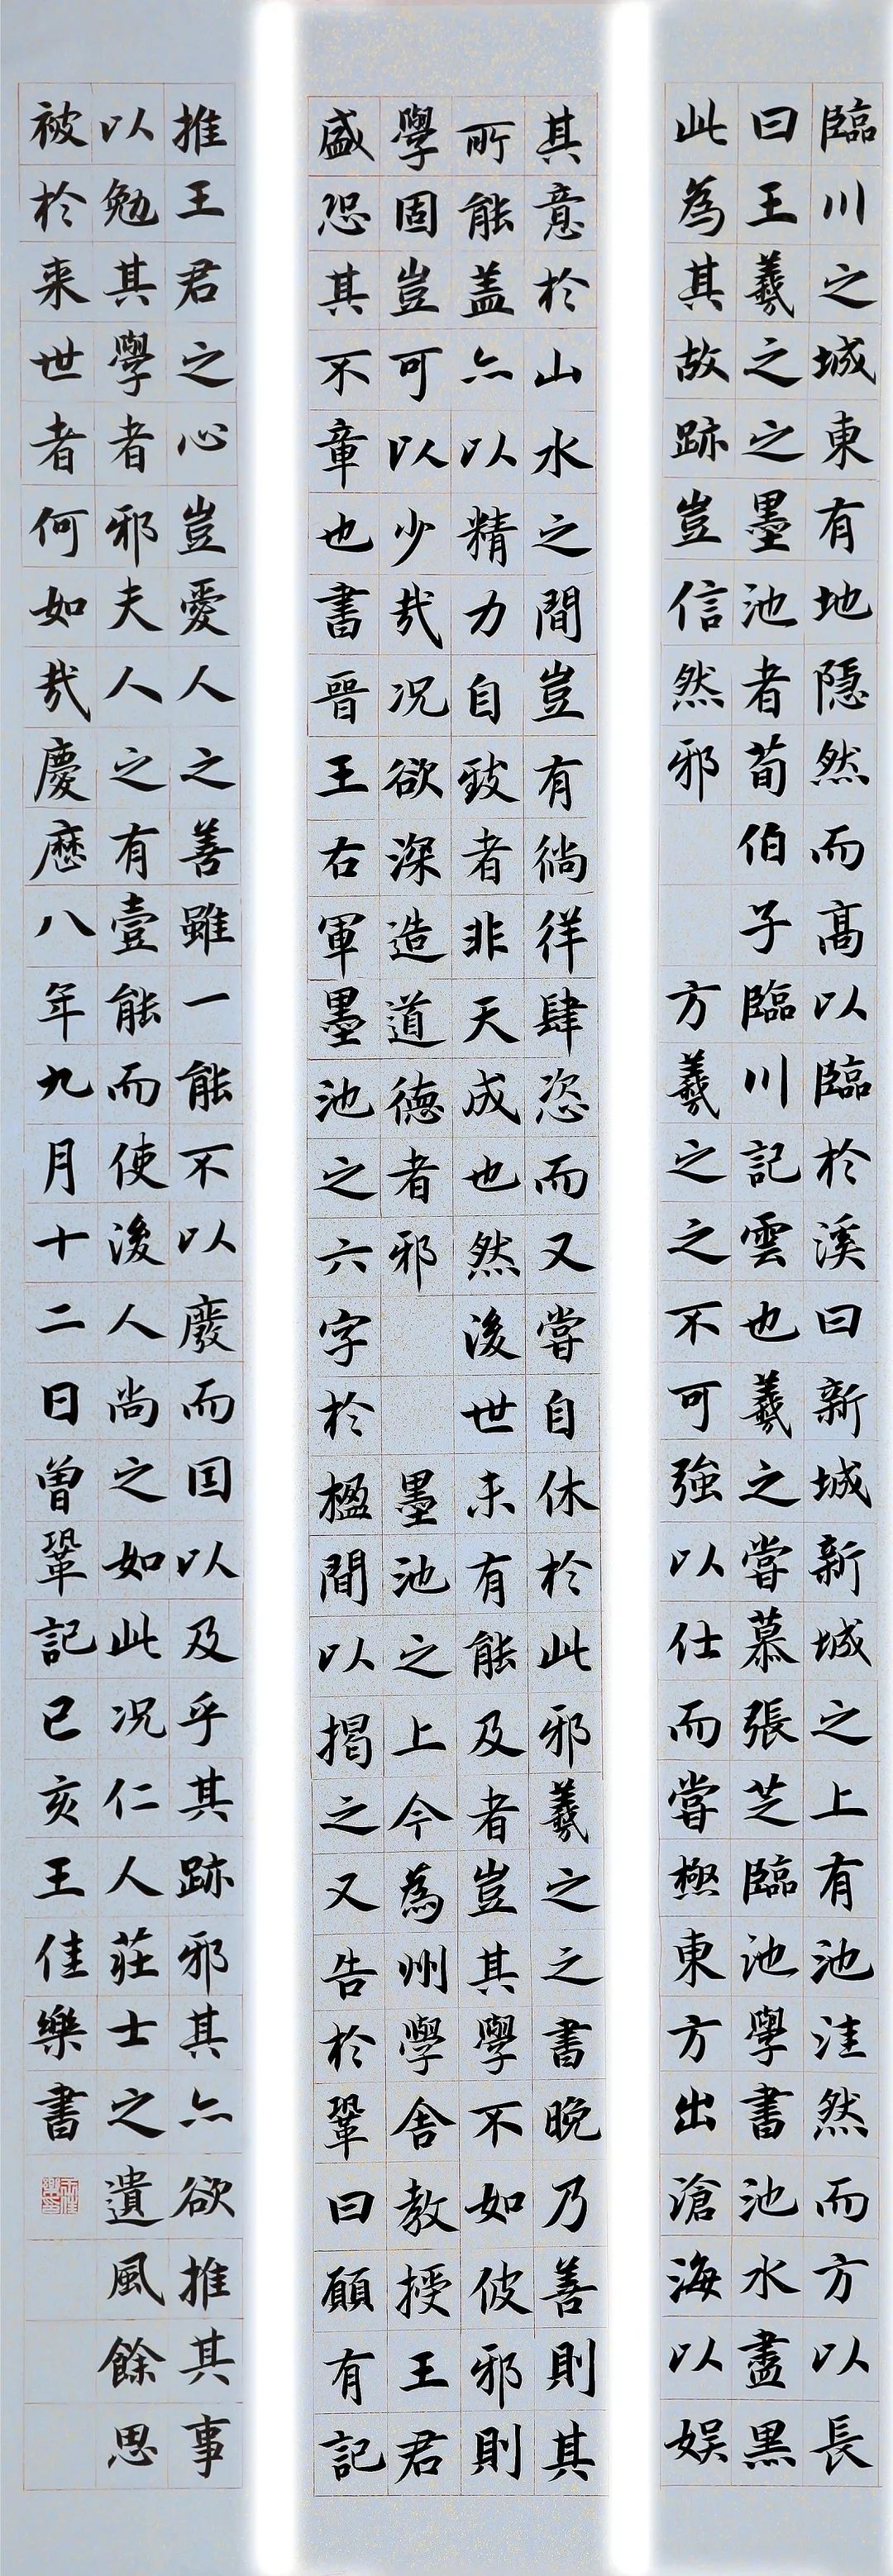 臨川之城東有地隱然而高以臨於溪曰新城新城之上有池洼然而方以長
曰王羲之之墨池者荀伯子臨川記雲也羲之嘗慕張芝臨池學書池水盡黑
此為其故跡豈信然邪方羲之之不可強以仕而嘗極東方出滄海以娛
其意於山水之間豈有徜徉肆恣而又嘗自休於此邪羲之之書晚乃善則其
所能盖亦以精力自致者非天成也然後世未有能及者豈其學不如彼邪則
學固豈可以少哉况欲深造道德者邪墨池之上今為州學舍教授王君
盛恐其不章也書晉王右軍墨池之六字於楹間以揭之又告於鞏曰願有記
推王君之心豈愛人之善雖一能不以廢而因以及乎其跡邪其亦欲推其事
以勉其學者邪夫人之有壹能而使後人尚之如此况仁人莊士之遺風餘思
被於来世者何如哉慶曆八年九月十二日曾鞏記已亥王佳樂書